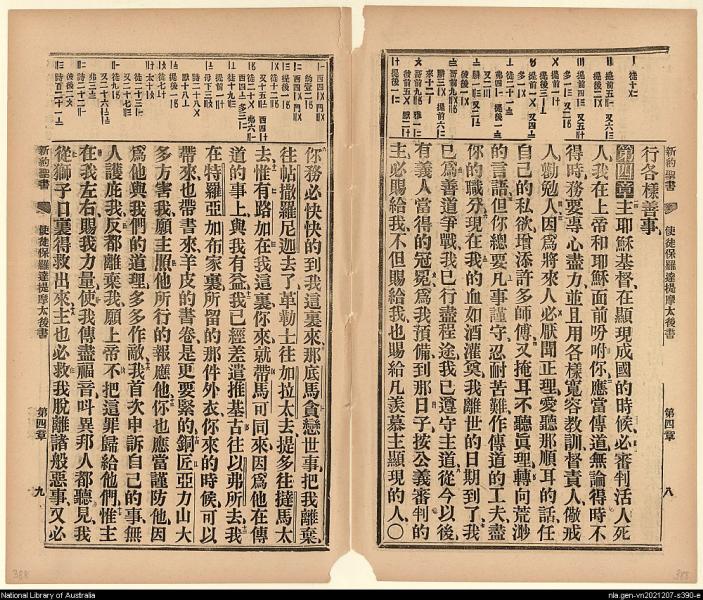 行各樣善事
第四章主耶穌基督在顯現成國的時候必審判活人死
人我在上帝和耶穌面前吩咐你應當傳道無論得時不
得時務要專心盡力並且用各樣寬容教訓督責人儆戒
人勸勉人因爲將來人必厭聞正理愛聽那順耳的話任
自己的私欲增添許多師傅又掩耳不聽眞理轉向荒渺
的言語但你總要凡事謹守忍耐苦難作傳道的工夫盡
你的職分現在我的血如酒灌奠我離世的日期到了我
已爲善道爭戰我已行盡程途我已遵守主道從今以後
有義人當得的冠冕爲我預備到那日子按公義審判的
主必賜給我不但賜給我也賜給凡羨慕主顯現的人〇
新約聖書 使徒保羅達提摩太後書 第四章 八
你務必快快的到我這裏來那底馬貪戀世事把我離棄
往帖撒羅尼迦去了革勒士往加拉太去提多往撻馬太
去惟有路加在我這裏你來就帶馬可同來因爲他在傳
道的事上與我有益我已經差遣推基古往以弗所去我
在特羅亞加布家裏所留的那件外衣你來的時候可以
帶來也帶書來羊皮的書卷是更要緊的銅匠亞力山大
多方害我願主照他所行的報應他你也應當謹防他因
爲他與我們的道理多多作敵我首次申訴自己的事無
人護庇我反都離棄我願上帝不把這罪歸給他們惟主
在我左右賜我力量使我傳盡福音呌異邦人都聽見我
從獅子口裏得救出來主也必救我脫離諸般惡事又必
新約聖書 使徒保羅達提摩太後書 第四章 九
388
388
National Library of Australia
nla.gen-vn2021207-s390-e